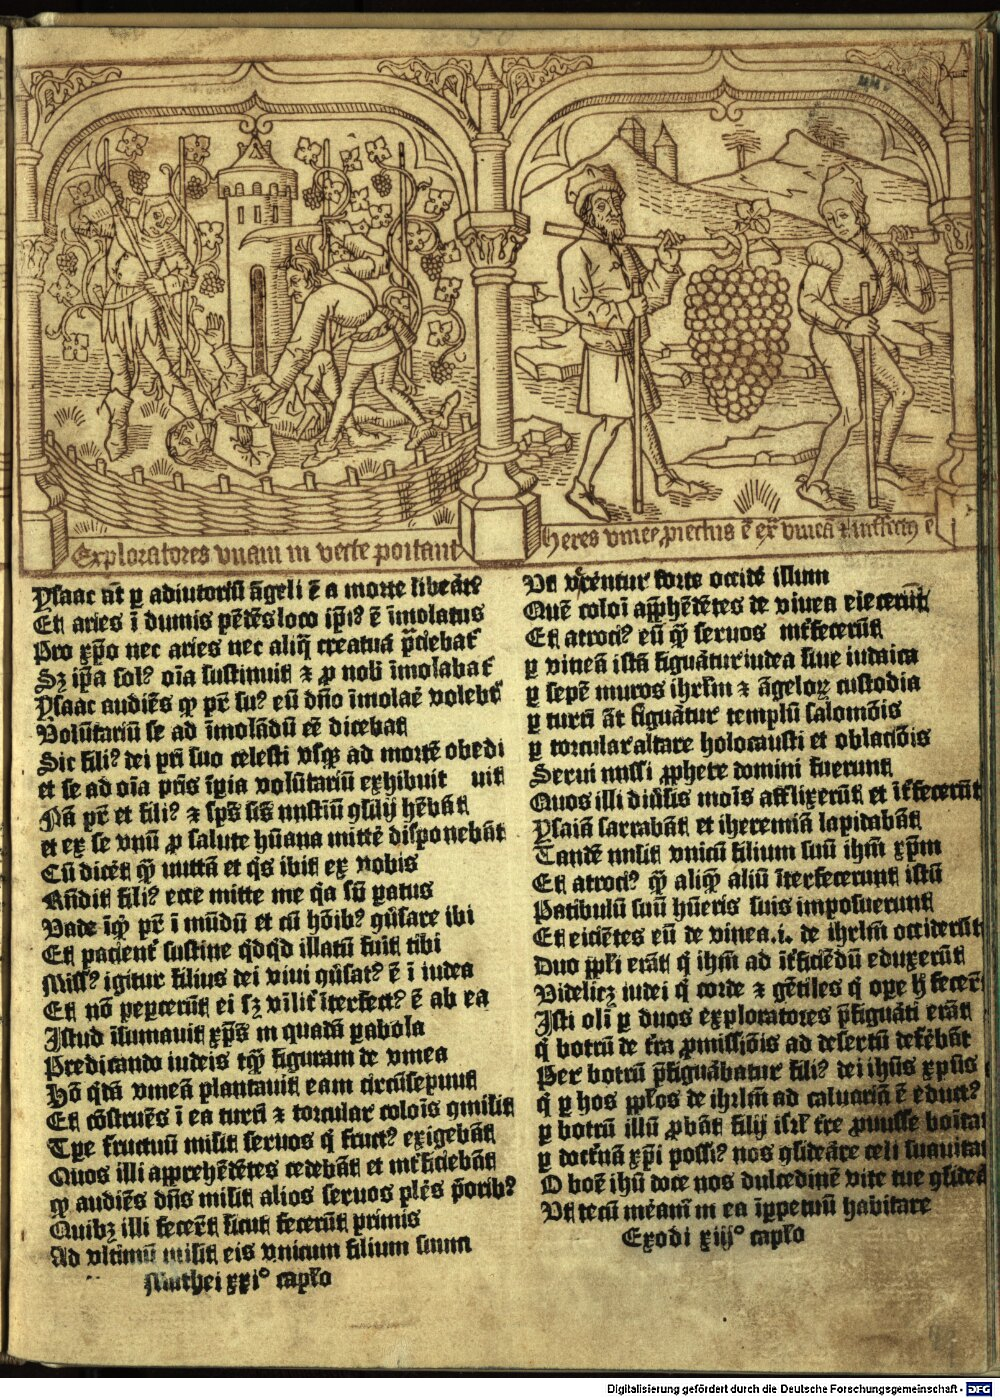 Exploratores vuam in vecte portant
Heres vinee proiectus ē ex vinea & interfectꝰ ē
Ysaac aūt ꝑ adiutoriū āgeli ē a morte liberatꝰ
Et aries ī dumis pēdēs loco ipīꝰ ē īmolatus
Pro xp̄o nec aries nec aliq̄ creatura p̄ciebat᷑
Sꝫ ip̄a solꝰ oīa sustinuit & ꝓ nob̄ īmolabat᷑
Ysaac audiēs qꝙ pr̄ suꝰ eū dn̄o īmolare volebat
Volūtariū se ad īmolādū eē dicebat
Sic filiꝰ dei pr̄i suo celesti vsqꝫ ad mortē obedi
et se ad oīa pr̄is īpia volūtariū exhibuit uit
Nā pr̄ et filiꝰ & sp̄s sc̄s mistiū ɔsilij hēbāt
et ex se vnū ꝓ salute hūana mittē disponebāt
Cū dicēt qꝫ mittā et q̇s ibit ex vobis
Rn̄dit filiꝰ ecce mitte me q̇a sū patus
Vade īqꝫ pr̄ ī mūdū et cū hōibꝰ ɔūsare ibi
Et pacient᷑ sustine qdqd illatū fuit tibi
Missꝰ igitur filius dei viui ɔūsatꝰ ē ī iudea
Et nō pepercerūt ei sꝫ vilit᷑ īterfectꝰ ē ab ea
Istud īsinuauit xp̄s in quadā pabola
Predicando iudeis tqꝫ figuram de vinea
Hō q̇dā vineā plantauit eam circūsepiuit
Et cōstruēs ī ea turrī & torcular colonis ɔmisit
Tp̄e fructuū misit seruos q̄ fructꝰ exigebāt
Quos illi apprehēdētes cedebāt et int᷑ficiebāt
qꝙ audiēs dn̄s misit alios seruos plēs p̄oribꝰ
Quibꝫ illi fecerūt sicut fecerūt primis
Ad vltimū misit eis vnicum filium suum
Mathei xxiº capl̄o
Vt v'erentur forte occidē illum
Quē coloni apprhēdētes de vinea eiecerūt
Et atrociꝰ eū qꝫ seruos int᷑fecerūt
ꝑ vineā istā figurāt᷑ur iudea siue iudaica
ꝑ sepē muros ihrl̄m & āgeloꝝ custodia
ꝑ turrī āt figurātur templū salomōis
ꝑ torcular altare holocausti et oblaciōis
Serui missi ꝓphete domini fuerunt
Quos illi diūsis mois afflixerūt et īt᷑fecerūt
Ysaiā sarrabāt et iheremiā lapidabāt
Tandē misit vnicū filium suū ihm̄ xp̄m
Et atrociꝰ qꝫ aliqꝫ aliū īterfecerunt istū
Patibulū suū hūeris suis imposuerunt
Et eiciētes eū de vinea .i. de ihrl̄m occiderūt
Duo ppl̄i erāt q̄ ihm̄ ad īt᷑ficiēdū eduxerūt
Videlicꝫ iudei q̄ corde & gētiles q̄ ope h̄ fecerūt
Isti oli ꝑ duos exploratores p̄figurāti erāt
q̄ botrū de t᷑ra ꝓmissiōis ad desertū deferebāt
Per botrū p̄figurābatur filiꝰ dei ihūs xp̄us
q̄ ꝑ hos ppl̄os de ihrl̄m ad caluariā ē eductꝰ
ꝑ botrū illū ꝓbāt filij isrl̄ t᷑re ꝓmisse bonita
ꝑ doctrinā xp̄i possꝰ nos ɔsideare celi suauita
O bone ihū doce nos dulcedinē vite tue ɔsidera
Vt tecū meām in ea īpꝑetuū habitare
Exodi xiijº capl̄o
Digitalisierung gefördert durch die Deutsche Forschungsgemeinschaft - DFG